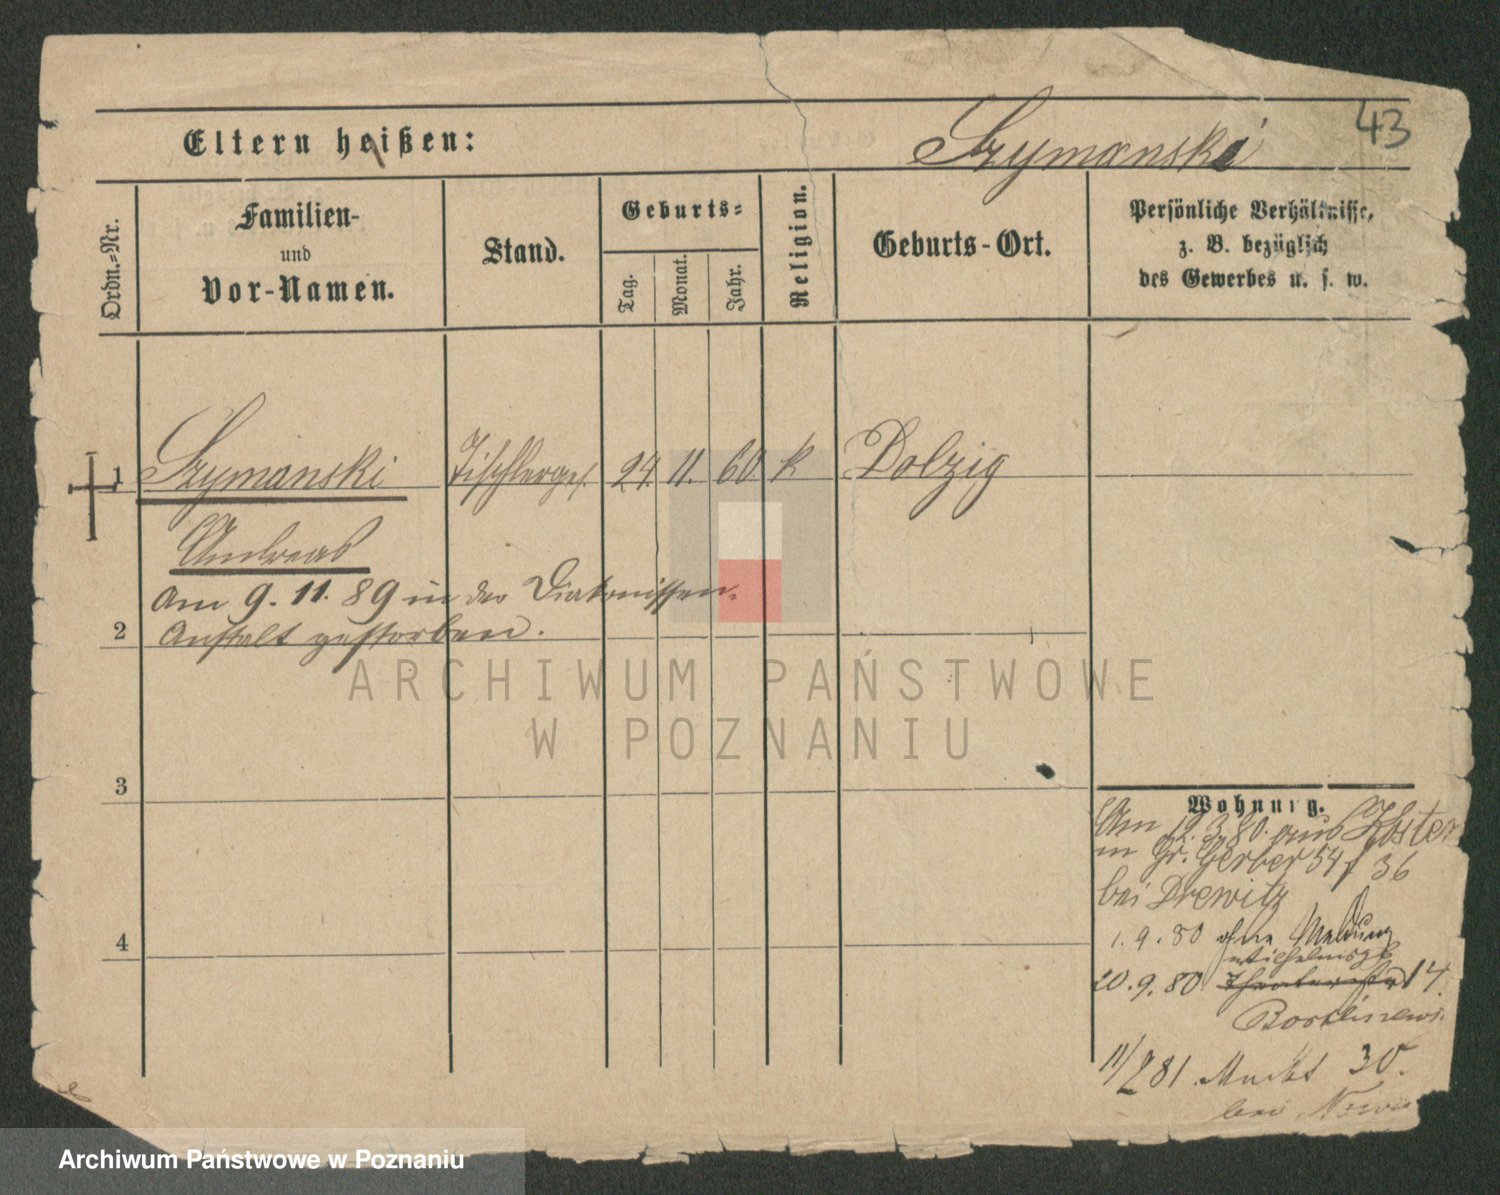 43
Eltern heißen:
Szymanski
Ordn.-Nr.
Familien-
und
Vor-Namen.
Stand.
Geburts-
Tag.
Monat.
Jahr.
Religion.
Geburts-Ort.
Persönliche Verhältnisse,
z. B. bezüglich
des Gewerbes u. s. w.
1 Szymanski Tischlerges. 24. 11. 60. k Dolzig
Andreas
Am 9. 11. 89 in der Diakonissen-
2 Anstalt gestorben.
3
4
Wohnung.
Am 12. 3. 80. aus Kloster
in Gr. Gerber 54 / 36
bei Drewitz
1. 9. 80 ohne Meldung
Wilhelmspl
20. 9. 80 Theaterstr 14.
11/2 81. Markt 30.
bei
ARCHIWUM PAŃSTWOWE
W POZNANIU
Archiwum Państwowe w Poznaniu